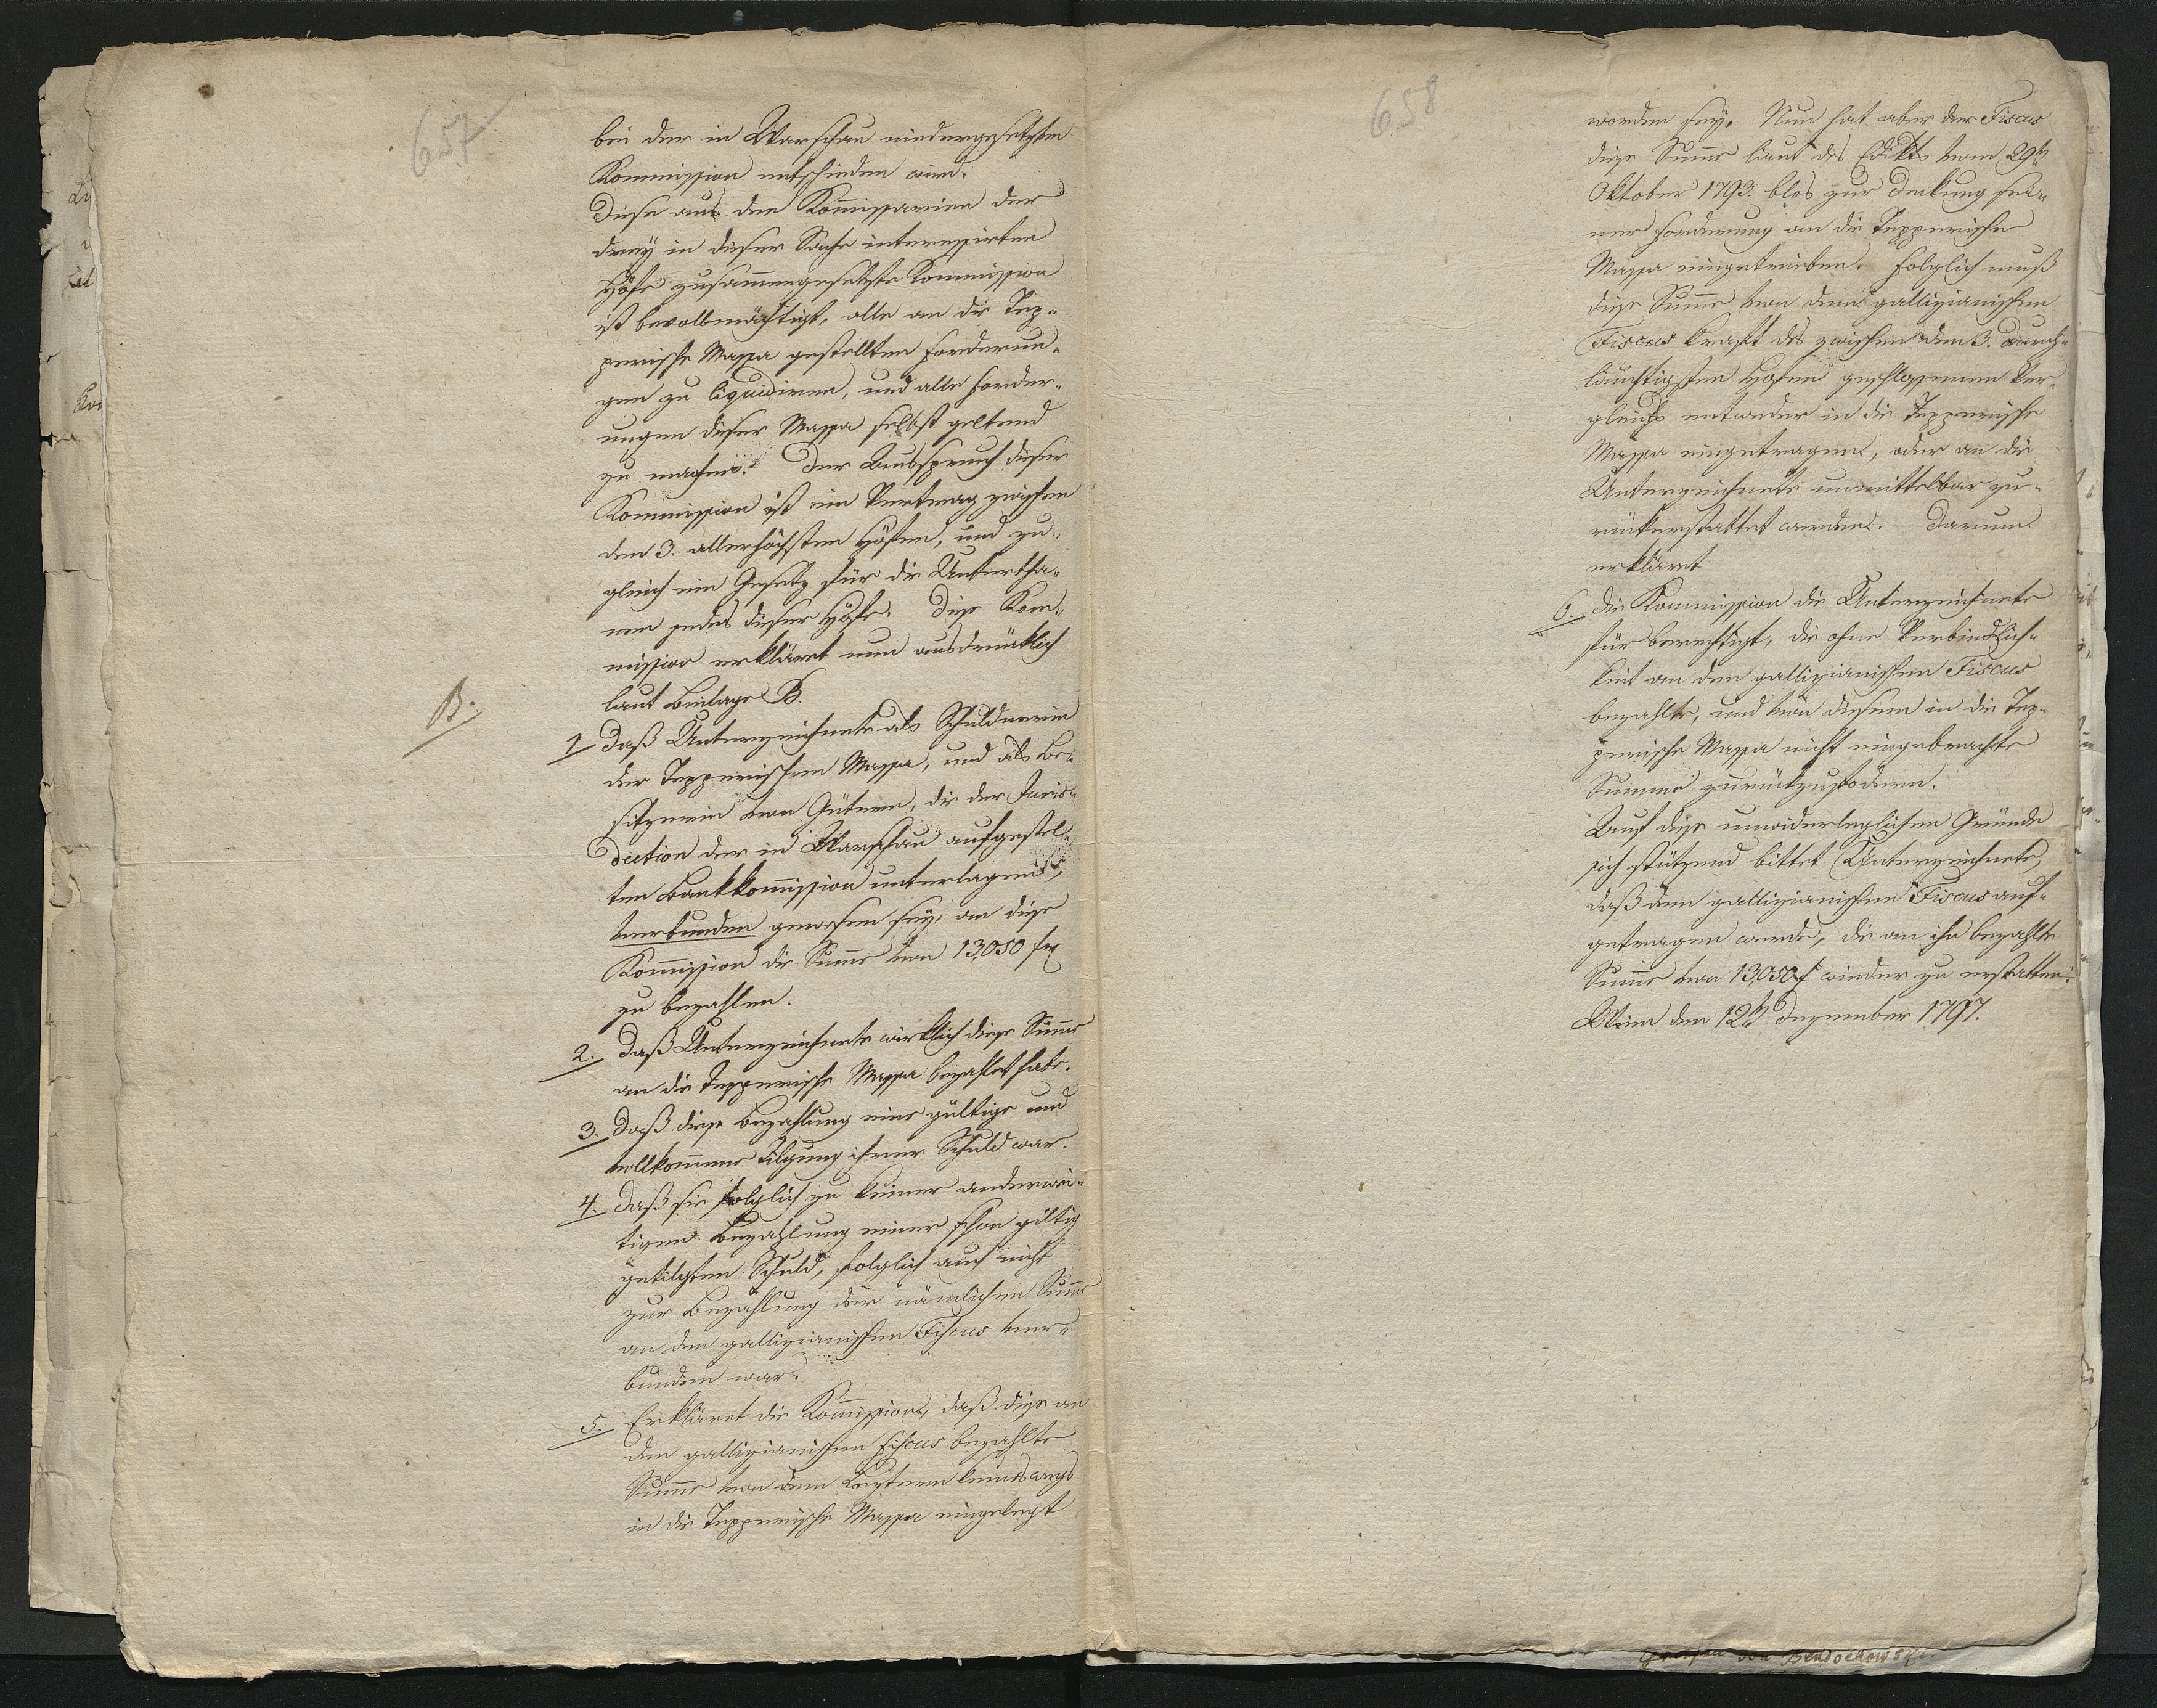 657
bei der in Warschau niedergesetzten
Kommission entschieden wird.
Diese aus den Kom̅issarien der
drey in dieser Sache interessirten
Höfe zusam̅engesetzte Kommission
ist bevollmächtigt, alle an die Tep-
perische Massa gestellten Forderun-
gen zu liquidiren, und alle Forder-
ungen dieser Massa selbst geltend
zu machen. Der Ausspruch dieser
Kommission ist ein Vertrag zwischen
den 3. allerhöchsten Höfen, und zu-
gleich ein Gesetz für die Untertha-
nen jedes dieser Höfe. Diese Kom-
mission erkläret nun ausdrücklich
laut Beilage B.
B.
1 Daß Unterzeichnete als Schuldnerin
der Tepperischen Massa, und als Be-
sitzerin von Gütern, die der Juris-
diction der in Warschau aufgestel-
ten Bankkom̅ission unterlagen,
verbunden gewesen sey, an diese
Kom̅ission die Sum̅e von 13,050 f
zu bezahlen.
2. Daß Unterzeichnete wirklich diese Sum̅e
an die Tepperische Massa bezahlet habe.
3. Daß diese Bezahlung eine gültige und
vollkom̅ene Tilgung ihrer Schuld war.
4. Daß sie folglich zu keiner anderwei-
tigen Bezahlung einer schon gültig
getilgten Schuld, folglich auch nicht
zur Bezahlung der nämlichen Sum̅e
an den gallizianischen Fiscus ver-
bunden war.
5. Erkläret die Kom̅ission, daß diese an
den gallizianischen Fiscus bezahlte
Sum̅e von dem Leztern keineswegs
in die Tepperische Massa eingelegt
658
worden sey. Nun hat aber der Fiscus
diese Sum̅e laut des Edikts vom 29t
Oktober 1793. blos zur Deckung sei-
ner Forderung an die Tepperische
Massa eingetrieben. Folglich muß
diese Sum̅e von dem gallizianischen
Fiscus kraft des zwischen den 3. durch-
lauchtigsten Höfen geschlossenen Ver-
gleichs entweder in die Tepperische
Massa eingetragen, oder an die
Unterzeichnete unmittelbar zu-
rückerstattet werden. Darum
erkläret
6. Die Kommission die Unterzeichnete
für berechtigt, die ohne Verbindlich-
keit an den gallizianischen Fiscus
bezahlte, und von diesem in die Tep-
perische Massa nicht eingebrachte
Summe zurückzufodern.
Auf diese unwiderleglichen Gründe
sich stützend bittet Unterzeichnete,
daß dem gallizianischen Fiscus auf-
getragen werde, die an ihn bezahlte
Sum̅e von 13,050 f wieder zu erstatten.
Wien den 12t Dezember 1797.